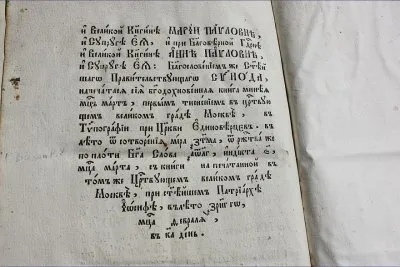 и҆ Великой Кн҃гинѣ МАРІИ ПАѴЛОВНѢ,
и҆ Сꙋпрꙋгѣ Еѧ̀, и҆ при Бл҃говѣрной Гд҃рнѣ
и҆ Великой Кн҃гинѣ АННѢ ПАѴЛОВНѢ,
и҆ Сꙋпрꙋгѣ Еѧ̀. Бл҃гословенїемъ же Ст҃ѣй
шагѡ Правительствꙋющагѡ СѴНОДА,
напечатасѧ сїѧ̀ бг҃одꙋхновеннаѧ книга минеѧ
мц҃ъ мартъ, первымъ тисненїемъ въ цр҃твꙋю
щемъ великомъ градѣ Москвѣ, въ
Тѷпографїи при Цр҃кви Единовѣрцевъ. въ
лѣто ѿ сотворенїѧ мїра ѿ рж҃тва же
по плоти Бг҃а Слова індїкта
мц҃а марта, съ книги на печатанной въ
томъ же Цр҃твꙋющемъ великомъ градѣ
Москвѣ, при ст҃ѣйшемъ Патрїархѣ
Іѡсифѣ, въ лѣто
мц҃а февралѧ,
въ к҃а день.